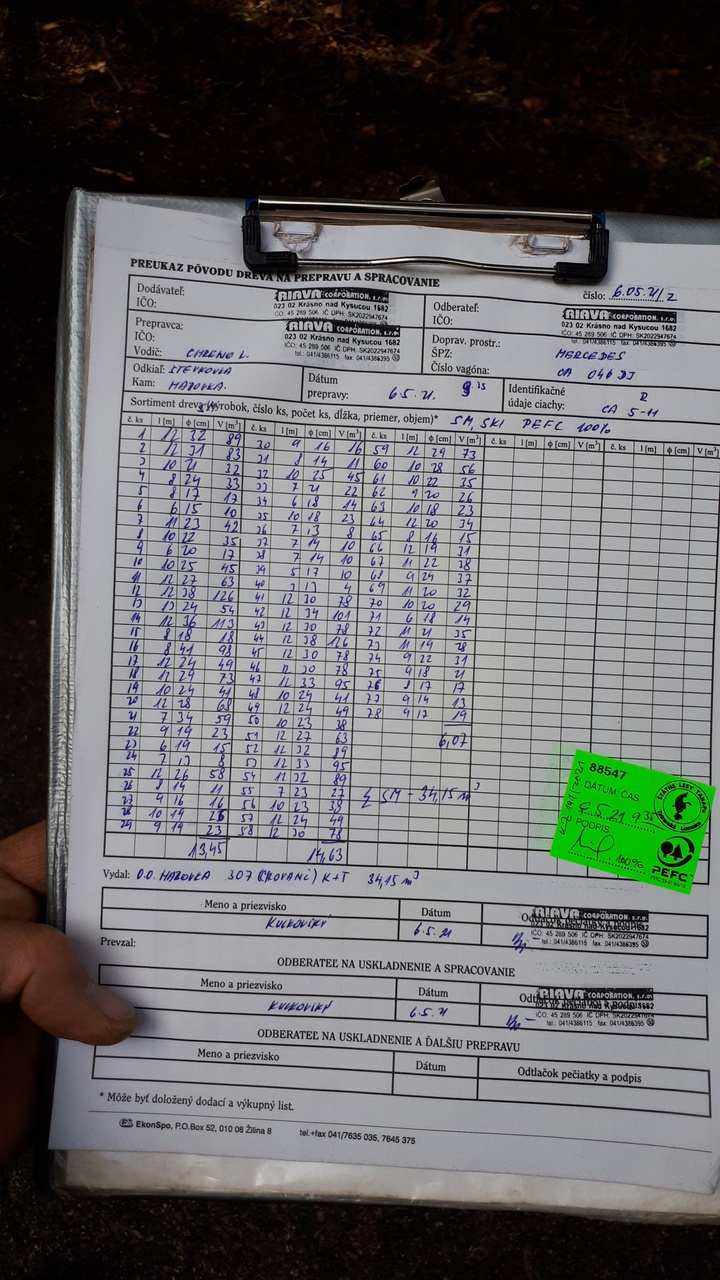 PREUKAZ PÔVODU DREVA NA PREPRAVU A SPRACOVANIE
číslo: 6.05.21/2
Dodávateľ:
IČO:
RIAVA CORPORATION, s.r.o.
023 02 Krásno nad Kysucou 1682
Odberateľ:
IČO:
RIAVA CORPORATION, s.r.o.
023 02 Krásno nad Kysucou 1682
IČO: 45 289 506 IČ DPH: SK2022947674
tel.: 041/4386115 fax: 041/4386395
Prepravca:
IČO:
RIAVA CORPORATION, s.r.o.
023 02 Krásno nad Kysucou 1682
IČO: 45 289 506 IČ DPH: SK2022947674
tel.: 041/4386115 fax: 041/4386395
Vodič:
Doprav. prostr.: MERCEDES
ŠPZ: CA 046 DJ
Číslo vagóna:
Odkiaľ:
Kam: MAZOVKA
Dátum
prepravy: 6.5.21. 9 35
Identifikačné
údaje ciachy: CA 5-11
Sortiment dreva (výrobok, číslo ks, počet ks, dĺžka, priemer, objem)* SM, SKI PEFC 100%
č. ks l [m] ϕ [cm] V [m³] č. ks l [m] ϕ [cm] V [m³] č. ks l [m] ϕ [cm] V [m³] č. ks l [m] ϕ [cm] V [m³] č. ks l [m] ϕ [cm] V [m³]
1 12 32 89 30 9 16 16 59 12 29 73
2 12 31 83 31 8 14 11 60 10 28 56
3 10 21 32 32 10 25 45 61 10 22 35
4 8 24 33 33 7 21 22 62 9 20 26
5 8 17 17 34 6 18 14 63 10 18 23
6 6 15 10 35 10 18 23 64 12 20 34
7 11 23 42 36 7 13 8 65 8 16 15
8 10 22 35 37 7 14 10 66 12 19 31
9 6 20 17 38 7 14 10 67 11 22 38
10 10 25 45 39 5 17 10 68 9 24 37
11 12 27 63 40 4 69 11 20 32
12 12 38 126 41 12 30 78 70 10 20 29
13 13 24 54 42 12 34 101 71 6 18 14
14 12 36 113 43 12 30 78 72 11 21 35
15 8 18 18 44 12 38 126 73 11 19 28
16 8 41 98 45 12 30 78 74 9 22 31
17 12 24 49 46 12 30 78 75 9 18 21
18 12 29 73 47 12 33 95 76 8 17 17
19 10 24 41 48 10 24 41 77 9 14 13
20 12 28 68 49 12 24 49 78 9 17 19
21 7 34 59 50 10 23 38
22 9 19 23 51 12 27 63 6,07
23 6 19 15 52 12 32 89
24 7 13 8 53 12 33 95
25 12 26 58 54 12 32 89
26 8 14 11 55 7 23 27 SM - 34,15 m³
27 9 16 16 56 10 23 38
28 10 19 26 57 12 24 49
29 9 19 23 58 12 30 78
13,45 14,63
88547
DÁTUM, ČAS
6.5.21 9 35
PODPIS
100%
PEFC
ŠTÁTNE LESY TANAPU
Vydal: O.O. MAZOVKA 307 K+T 34,15 m³
Meno a priezvisko Dátum Odtlačok pečiatky a podpis
6.5.21
RIAVA CORPORATION, s.r.o.
023 02 Krásno nad Kysucou 1682
IČO: 45 289 506 IČ DPH: SK2022947674
tel.: 041/4386115 fax: 041/4386395
Prevzal:
ODBERATEĽ NA USKLADNENIE A SPRACOVANIE
Meno a priezvisko Dátum Odtlačok pečiatky a podpis
6.5.21
RIAVA CORPORATION, s.r.o.
023 02 Krásno nad Kysucou 1682
IČO: 45 289 506 IČ DPH: SK2022947674
tel.: 041/4386115 fax: 041/4386395
ODBERATEĽ NA USKLADNENIE A ĎALŠIU PREPRAVU
Meno a priezvisko Dátum Odtlačok pečiatky a podpis
* Môže byť doložený dodací a výkupný list.
EkonSpo, P.O.Box 52, 010 08 Žilina 8 tel.+fax 041/7635 035, 7645 375